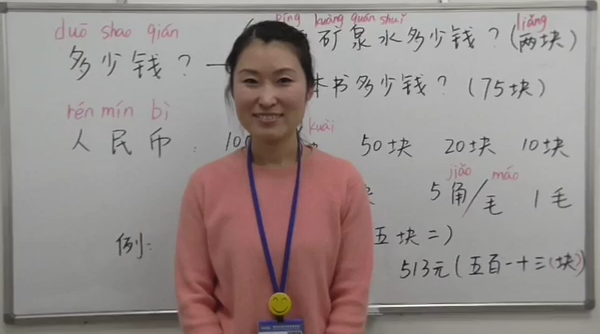 duō shao qián píng kuàng quán shuǐ liǎng
多少钱? 矿泉水多少钱?(两块)
本书多少钱?(75块)
rén mín bì kuài
人民币: 10 50块 20块 10块
jiǎo máo
块 5角/毛 1毛
例: 五块二)
513元(五百一十三(块))